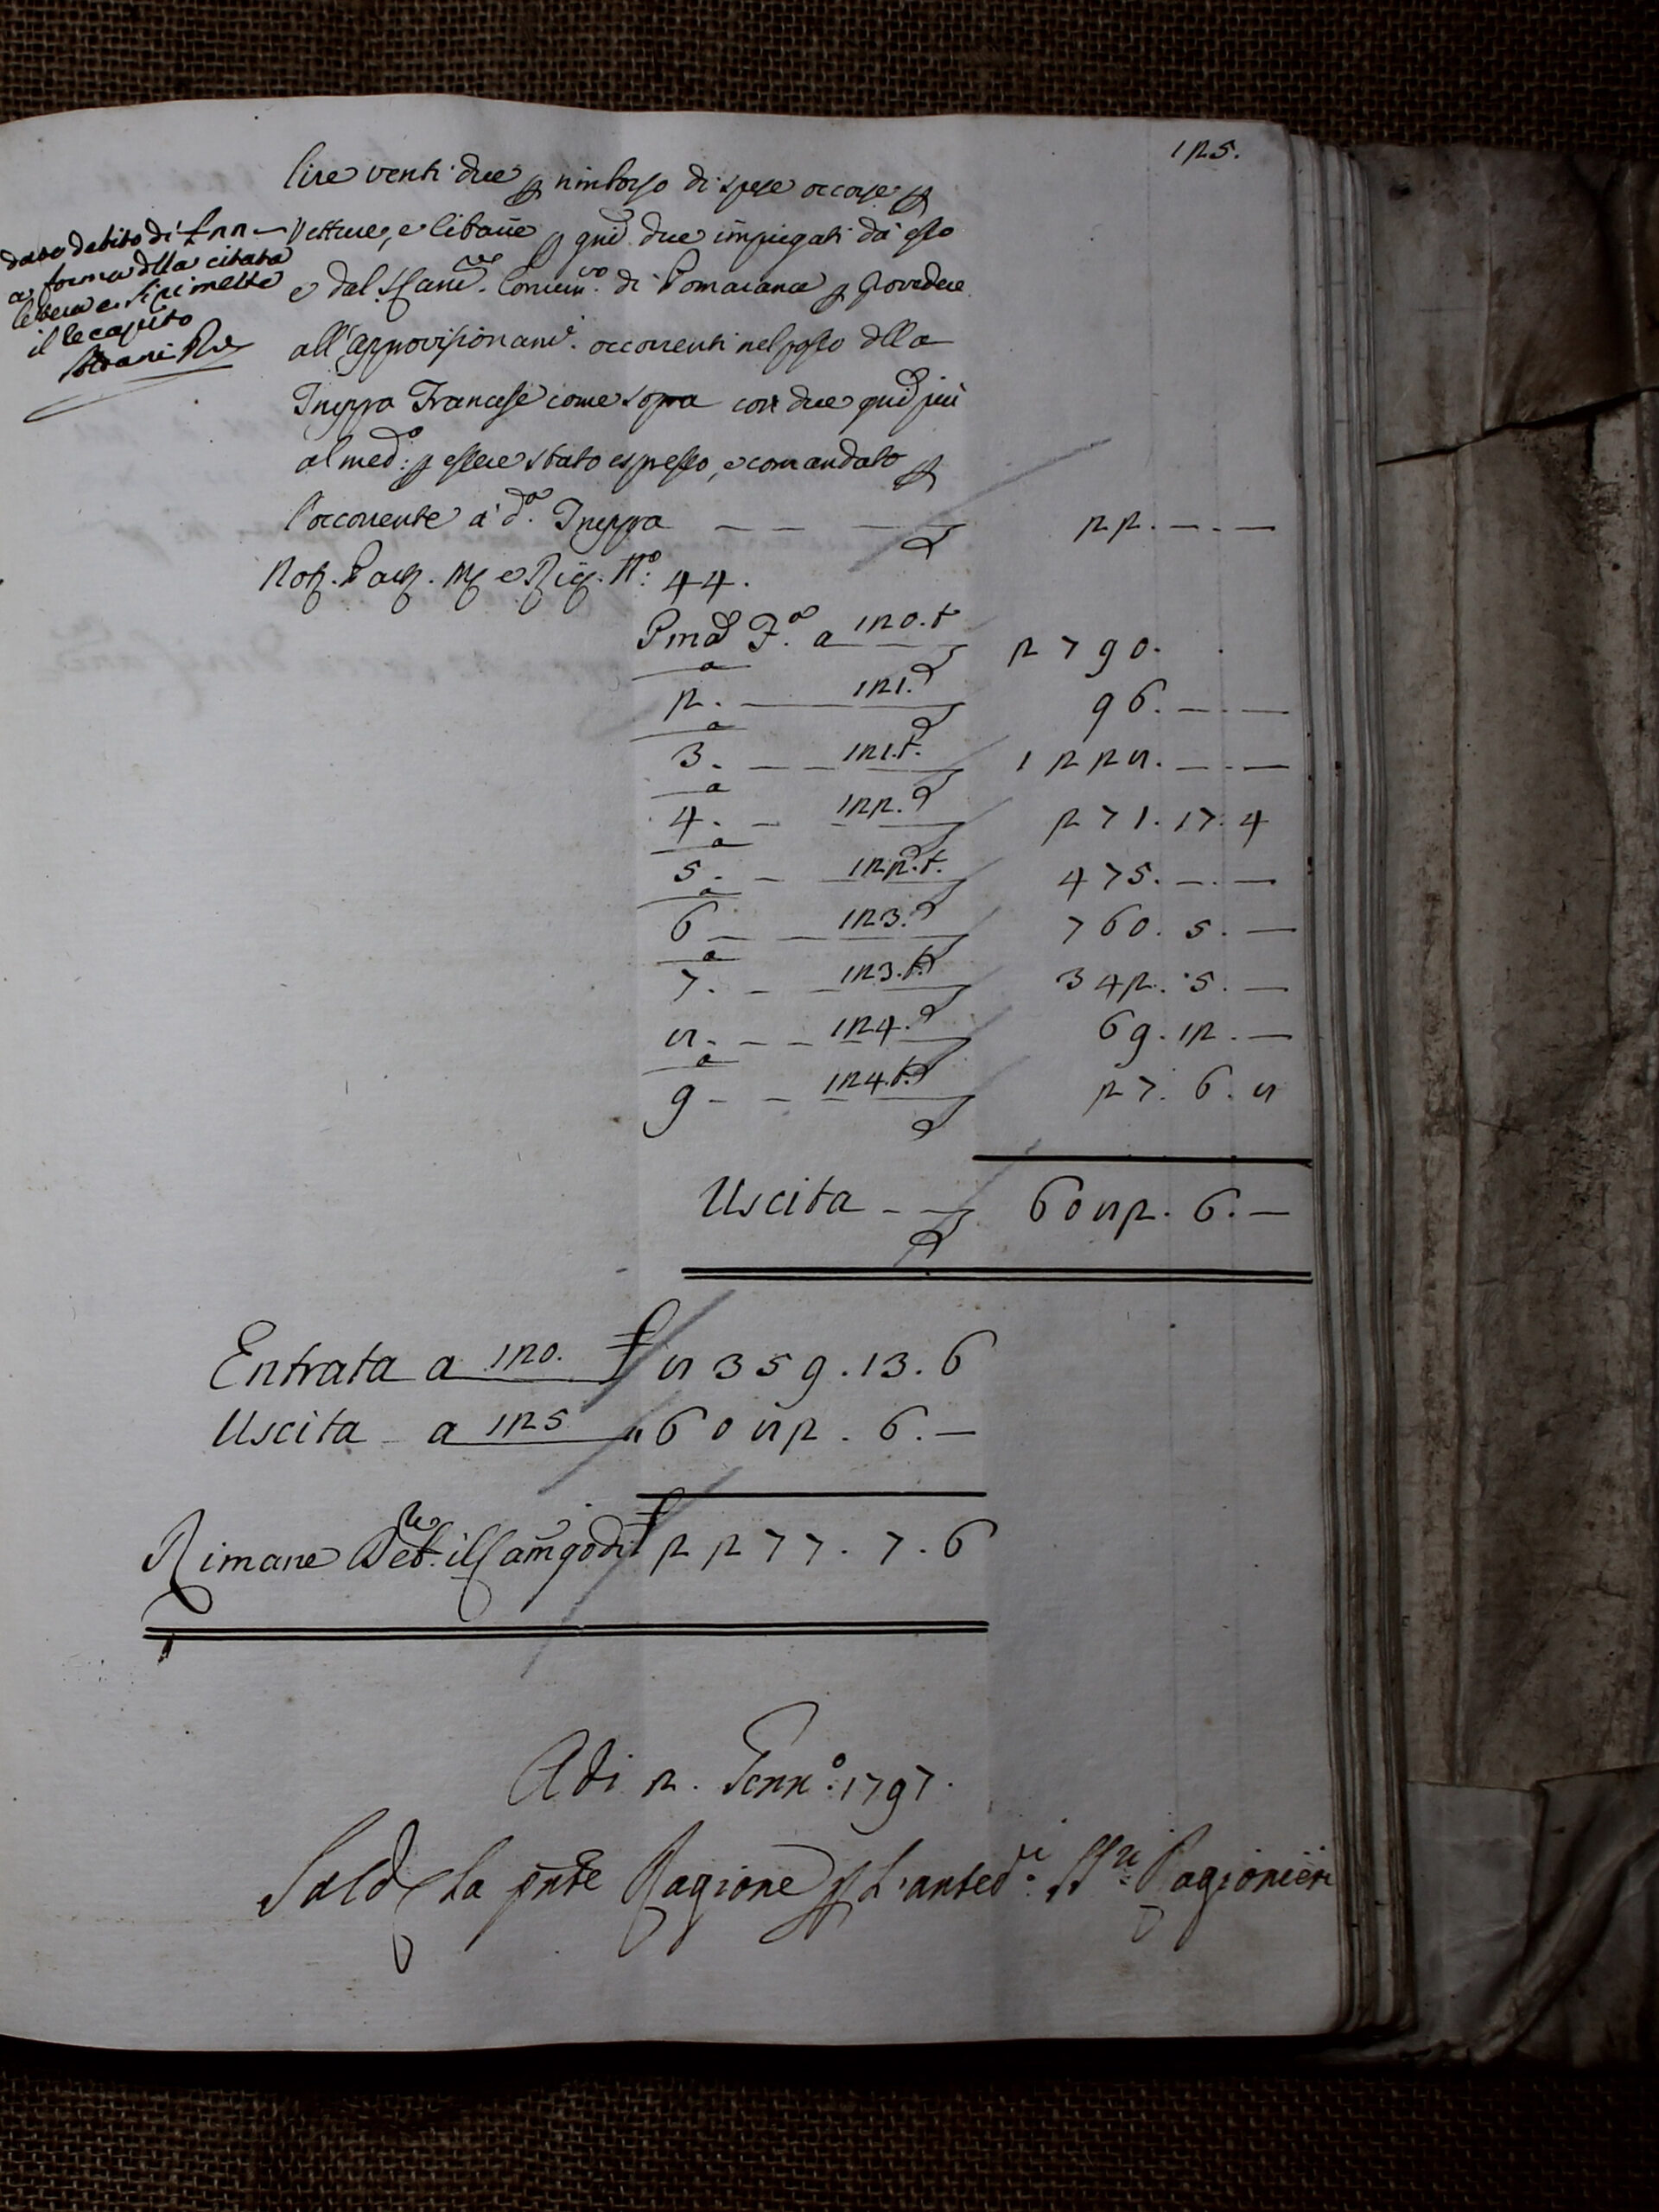 125.
lire venti due p rimborso di spese occorse p
Vetture, e cibarie p gni due impiegati da esso
e dal S. Canc.re Comun.vo di Pomarance p provedere
all'approvisionam.i occorrenti nel posto dlla
Truppa Francese come sopra con due gni più
al med.o: p essere stato espresso, e comandato p
l'occorrente a d.a Truppa — — — — 22. —. —
N.o: 44.
dato debito di £22 —
a forma dlla citata
lettera e si rimette
il recapito
Pma F.a a 120.t 2790.
2.a — 121. 96. —. —
3.a — — 121.t. 1228. —. —
4.a — 122. 271. 17. 4
5.a — 122.t. 475. —. —
6.a — — 123. 760. 5. —
7.a — 123.t. 342. 5. —
8.a — — 124. 69. 12. —
9.a — — 124.t. 27. 6. 8
Uscita — — 6082. 6. —
Entrata a 120. £ 8359. 13. 6
Uscita a 125 " 6082. 6. —
Rimane Deb.re il Camgo di £ 2277. 7. 6
Adi 2. Genn.o: 1797.
Sald. la pnte Ragione p L'anted.i SS.ri Ragionieri